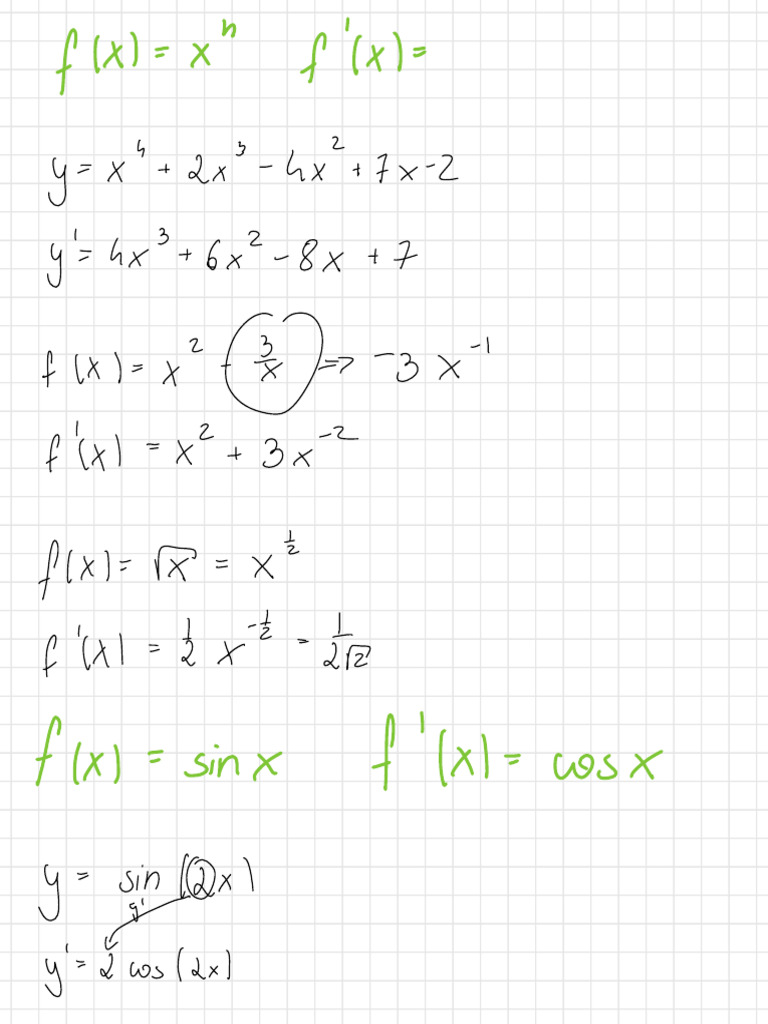 f(x) = xⁿ f'(x) =
y = x⁴ + 2x³ - 4x² + 7x - 2
y' = 4x³ + 6x² - 8x + 7
f(x) = x² - 3/x => -3x⁻¹
f'(x) = x² + 3x⁻²
f(x) = √x = x^(1/2)
f'(x) = 1/2 x^(-1/2) = 1/(2√2)
f(x) = sin x f'(x) = cos x
y = sin(2x)
g'
y' = 2 cos(2x)